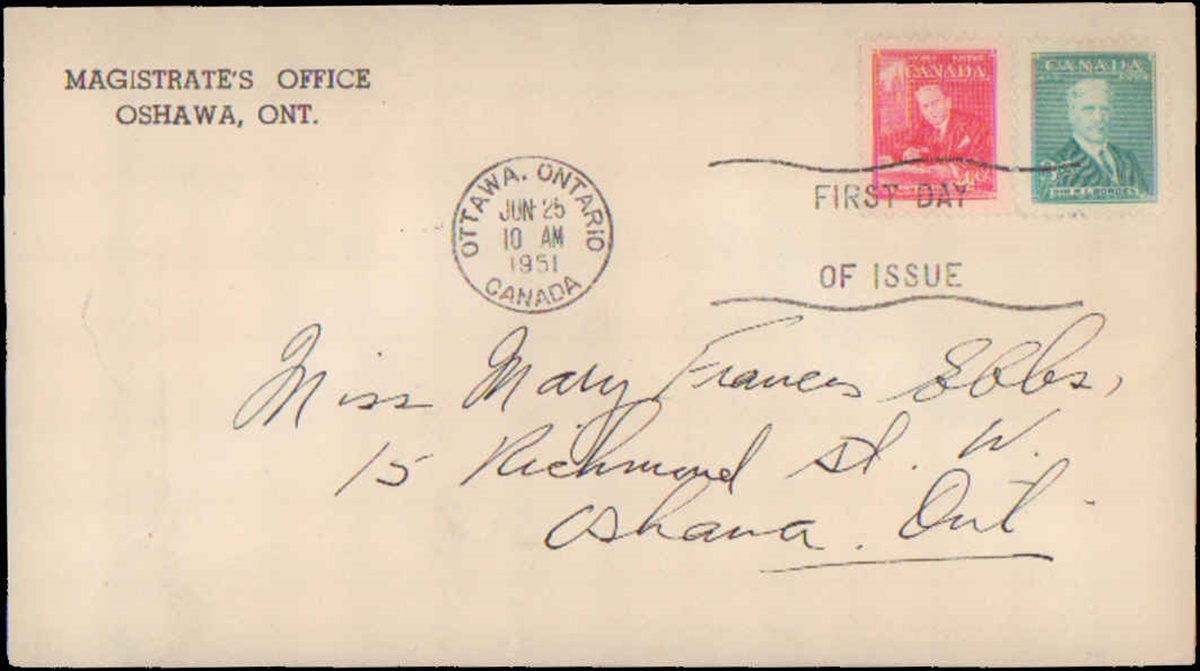 MAGISTRATE'S OFFICE
OSHAWA, ONT.
CANADA
CANADA
SIR R.L. BORDEN
OTTAWA. ONTARIO
JUN 25
10 AM
1951
CANADA
FIRST DAY
OF ISSUE
Miss Mary Frances Ebbs,
15 Richmond St. W.
Oshawa. Ont